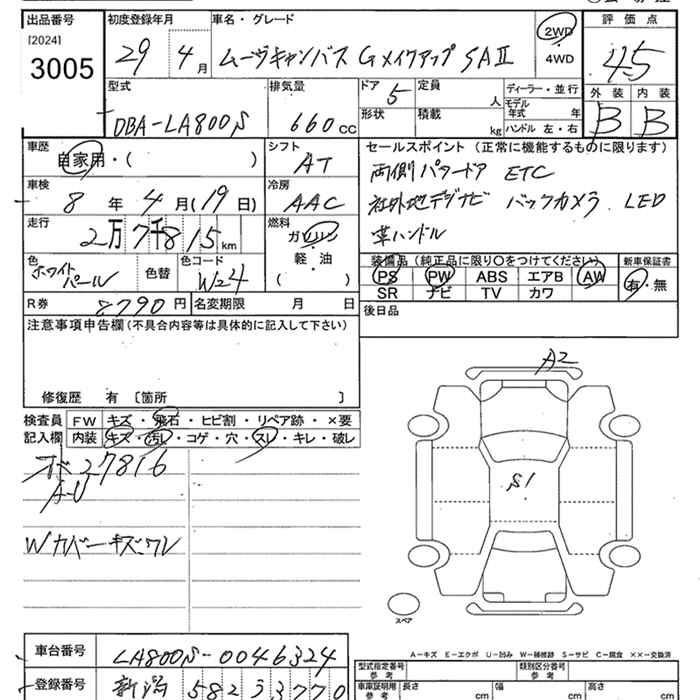 出品番号 初度登録年月 車名・グレード 2WD 4WD 評価点
[2024] 3005 29 4月 ムーヴキャンバス Gメイクアップ SAⅡ 4.5
型式 DBA-LA800S 排気量 660cc ドア 5 定員 人 ディーラー・並行 外装 内装
形状 積載 kg モデル年式 年 ハンドル 左・右 B B
車歴 自家用・( ) シフト AT
セールスポイント(正常に機能するものに限ります)
両側パワードア ETC
社外地デジナビ バックカメラ LED
革ハンドル
車検 8年 4月(19日) 冷房 AAC
走行 2万7千815km 燃料 ガソリン 軽・油 ( )
色 ホワイトパール 色替 色コード W24
装備品(純正品に限り○をつけてください) 新車保証書
PS PW ABS エアB AW 有・無
SR ナビ TV カワ
R券 8790円 名変期限 月 日
後日品
注意事項申告欄(不具合内容等は具体的に記入して下さい)
修復歴 有 〔箇所 〕
検査員記入欄 FW キズ・飛石・ヒビ割・リペア跡・×要
内装 キズ・汚レ・コゲ・穴・スレ・キレ・破レ
27816
A-U
Wカバーキズ、ワレ
A2
S1
スペア
A-キズ E-エクボ U-凹み W-補修跡 S-サビ C-腐食 ××-交換済
車台番号 LA800S-0046324
登録番号 新潟 582 3 3770
型式指定番号 参考 類別区分番号 参考
車庫証明用 参考 長さ cm 幅 cm 高さ cm